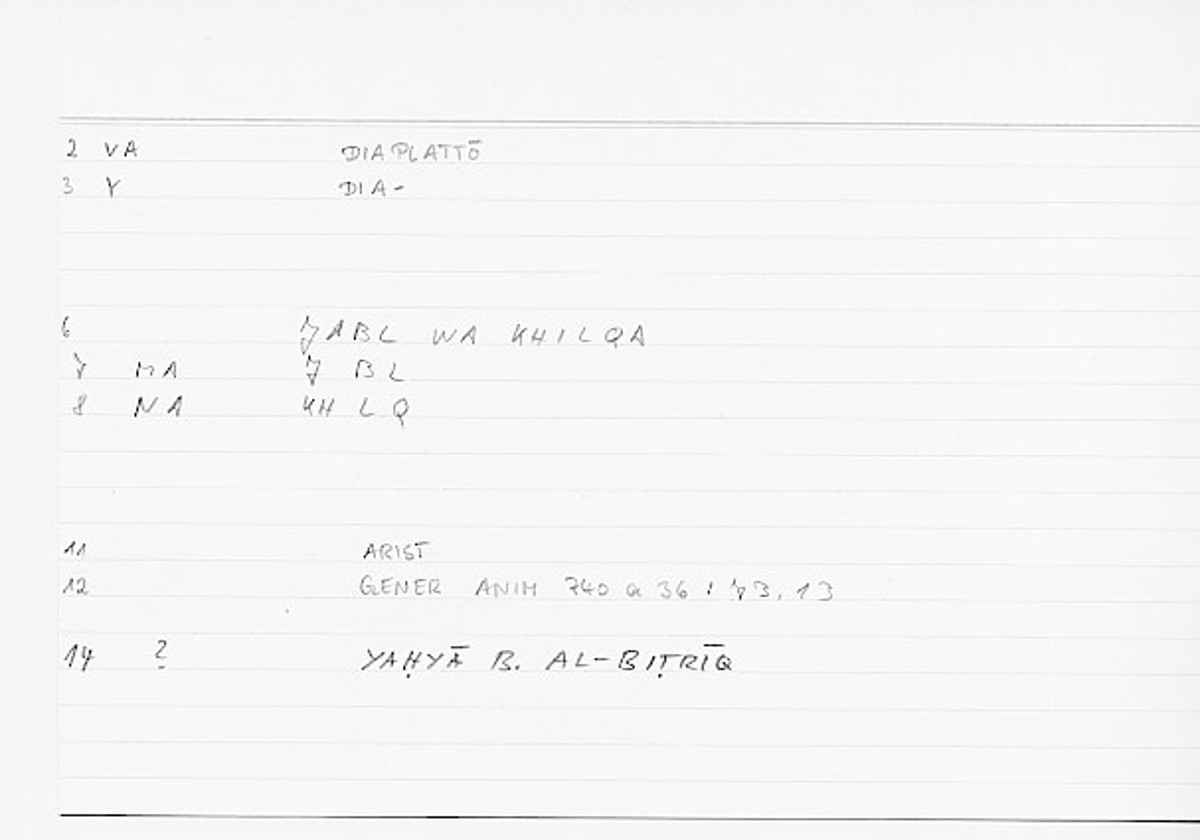 2 VA DIAPLATTŌ
3 Y DIA-
6 JABL WA KHILQA
7 MA J BL
8 NA KH LQ
11 ARIST
12 GENER ANIM 740 a 36 : 73, 13
14 ? YAḤYĀ B. AL-BIṬRĪQ